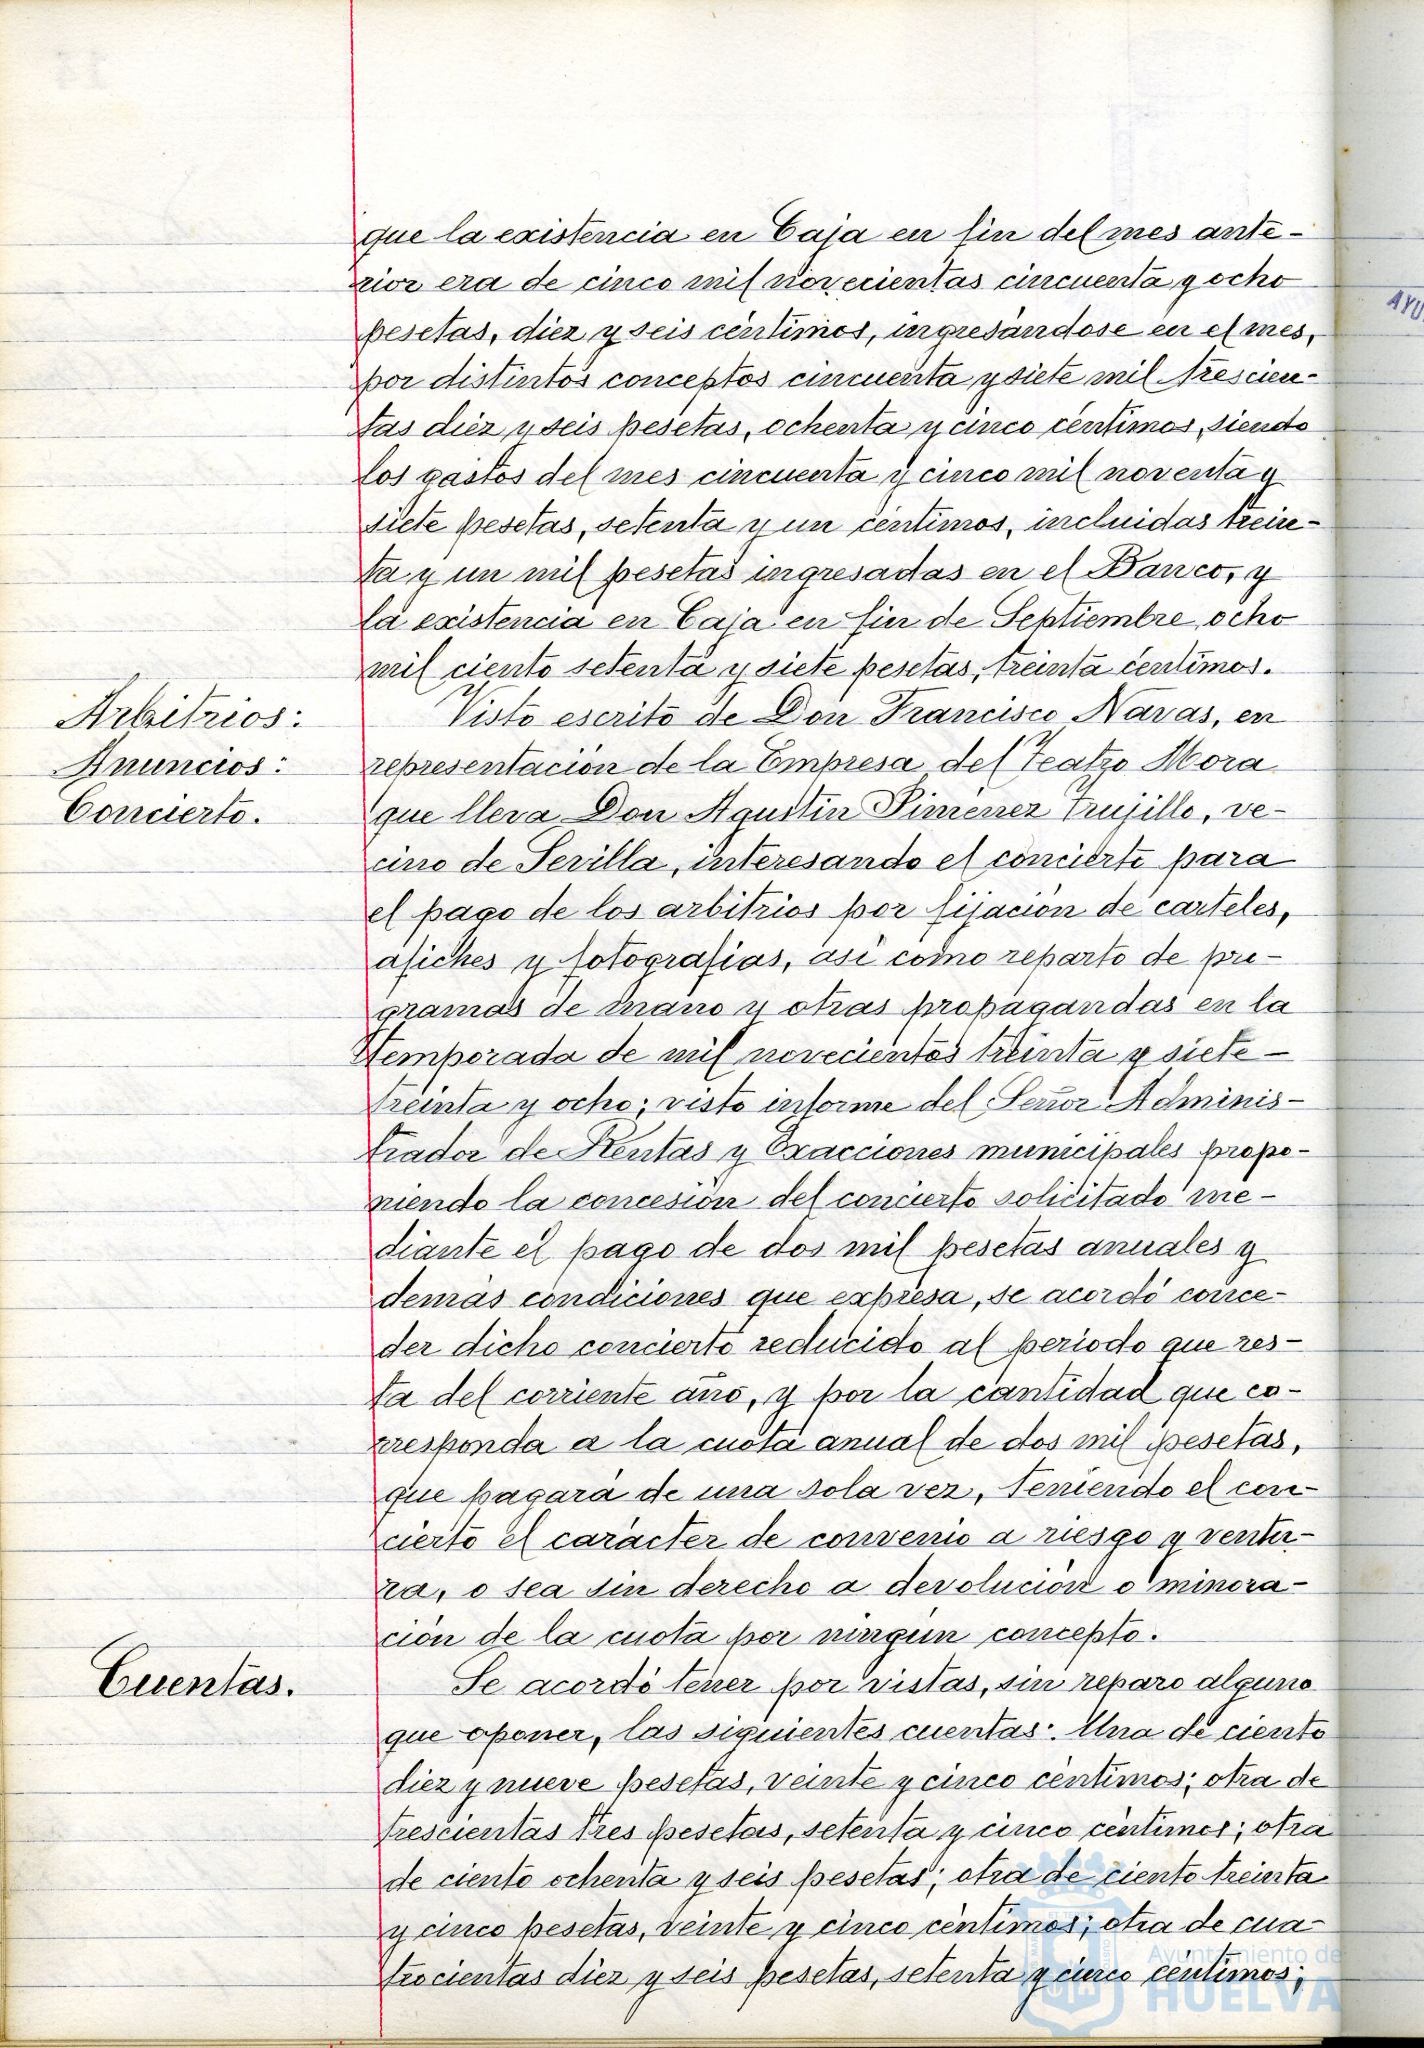 que la existencia en Caja en fin del mes ante-
rior era de cinco mil novecientas cincuenta y ocho
pesetas, diez y seis céntimos, ingresándose en el mes,
por distintos conceptos cincuenta y siete mil trescien-
tas diez y seis pesetas, ochenta y cinco céntimos, siendo
los gastos del mes cincuenta y cinco mil noventa y
siete pesetas, setenta y un céntimos, incluidas trein-
ta y un mil pesetas ingresadas en el Banco, y
la existencia en Caja en fin de Septiembre, ocho
mil ciento setenta y siete pesetas, treinta céntimos.
Arbitrios:
Anuncios:
Concierto.
Visto escrito de Don Francisco Navas, en
representación de la Empresa del Teatro Mora
que lleva Don Agustin Jimenez Trujillo, ve-
cino de Sevilla, interesando el concierto para
el pago de los arbitrios por fijación de carteles,
afiches y fotografias, asi como reparto de pro-
gramas de mano y otras propagandas en la
temporada de mil novecientos treinta y siete-
treinta y ocho; visto informe del Señor Adminis-
trador de Rentas y Exacciones municipales propo-
niendo la concesión del concierto solicitado me-
diante el pago de dos mil pesetas anuales y
demás condiciones que expresa, se acordó conce-
der dicho concierto reducido al periodo que res-
ta del corriente año, y por la cantidad que co-
rresponda a la cuota anual de dos mil pesetas,
que pagará de una sola vez, teniendo el con-
cierto el carácter de convenio a riesgo y ventu-
ra, o sea sin derecho a devolución o minora-
ción de la cuota por ningún concepto.
Cuentas.
Se acordó tener por vistas, sin reparo alguno
que oponer, las siguientes cuentas: Una de ciento
diez y nueve pesetas, veinte y cinco céntimos; otra de
trescientas tres pesetas, setenta y cinco céntimos; otra
de ciento ochenta y seis pesetas; otra de ciento treinta
y cinco pesetas, veinte y cinco céntimos; otra de cua-
trocientas diez y seis pesetas, setenta y cinco céntimos;
AYU
Ayuntamiento de
HUELVA